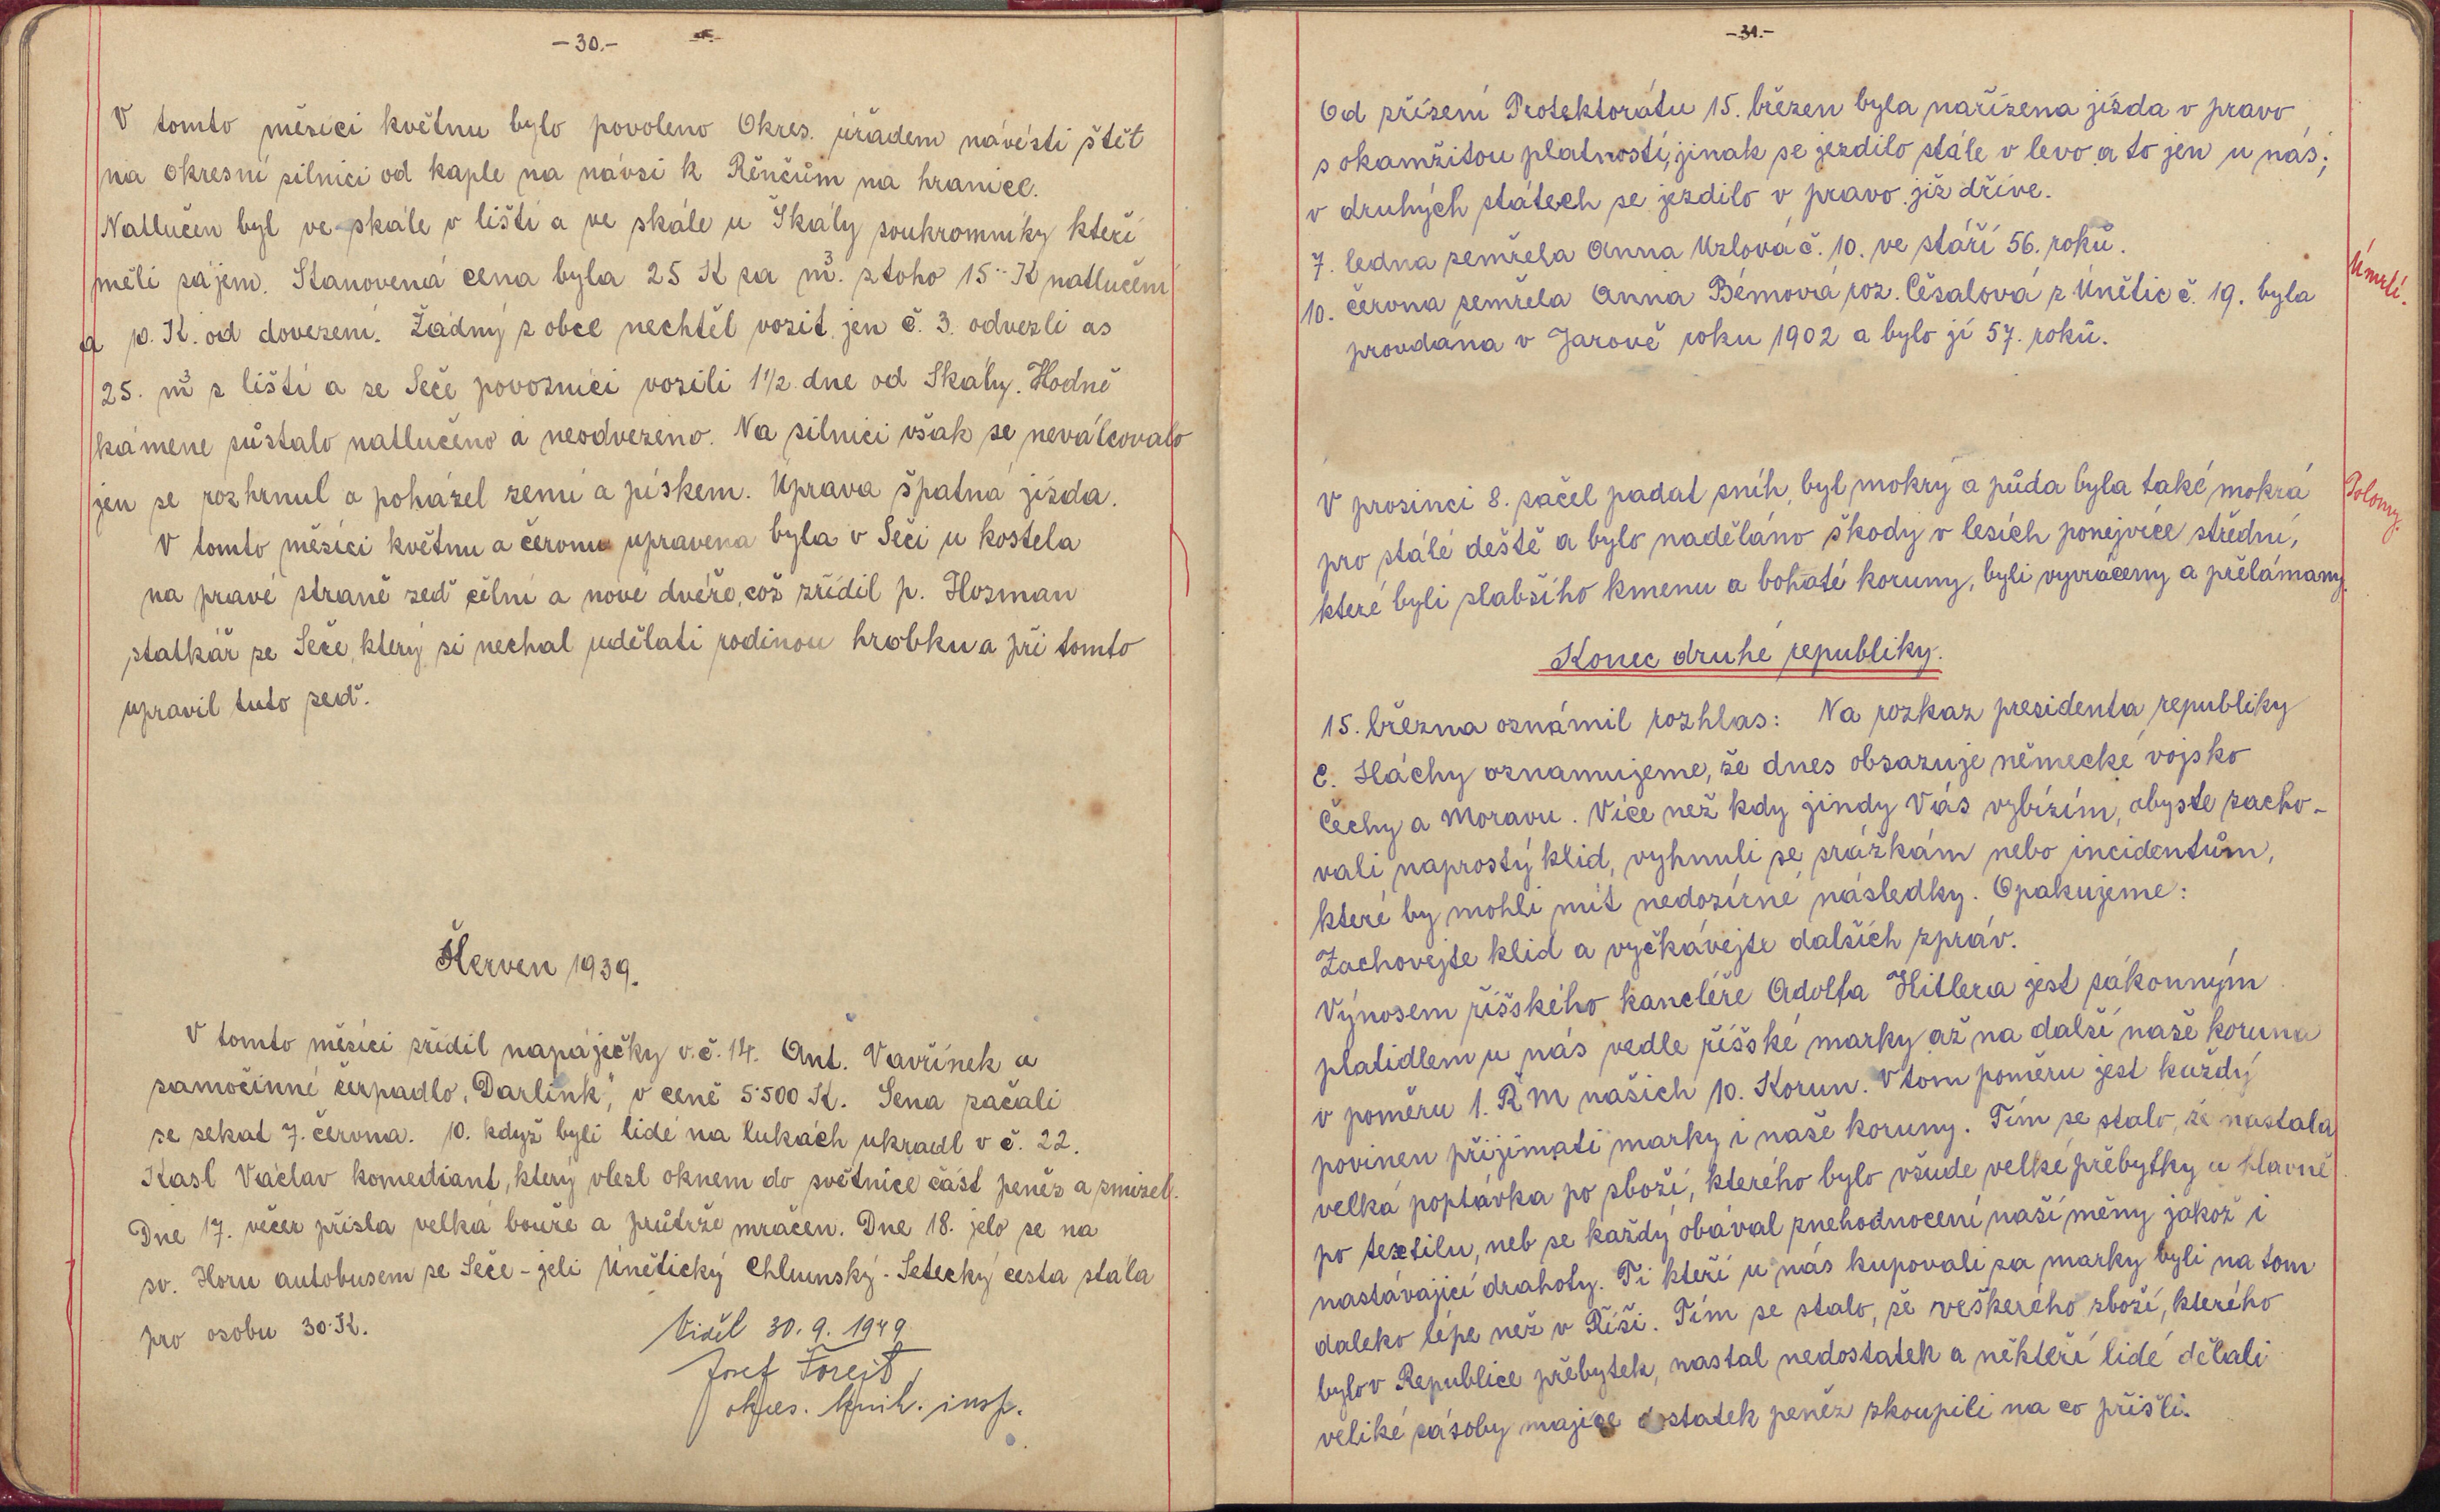 -30.-
V tomto měsíci květnu bylo povoleno Okres. úřadem návésti štět
na okresní silnici od kaple na návsi k Řěnčům na hranice.
Natlučen byl ve skále v lišti a ve skále u Škály soukromníky kteří
měli zájem. Stanovená cena byla 25 K za m³. z toho 15 K natlučení
a p. K. od dovezení. Žádný z obce nechtěl vozit jen č. 3. odvezli as
25. m³ z liští a ze Seče povozníci vozili 1½ dne od Skály. Hodně
kamene zůstalo natlučeno a neodvezeno. Na silnici však se neválcovalo
jen se rozhrnul a poházel zemí a pískem. Úprava špatná jízda.
V tomto měsíci květnu a červnu upravena byla v Seči u kostela
na pravé straně zeď čelní a nové dvéře, což zřídil p. Hozman
statkář ze Seče, který si nechal udělati rodinou hrobku a při tomto
upravil tuto zeď.
Červen 1939.
V tomto měsíci zřídil napáječky v č. 14. Ant. Vavřínek a
samočinné čerpadlo „Darlink", v ceně 5·500 K. Sena začali
se sekat 7. června. 10. když byli lidé na lukách ukradl v č. 22.
Kasl Václav komediant, který vlezl oknem do světnice část peněz a zmizel.
Dne 17. večer přišla velká bouře a průtrže mračen. Dne 18. jelo se na
sv. Horu autobusem ze Seče - jeli Únětický Chlumský - Setecký cesta stála
pro osobu 30·K.
Viděl 30. 9. 1949
Josef Forejt,
okres. knih. insp.
-31.-
Od zřízení Protektorátu 15. březen byla nařízena jízda v pravo
s okamžitou platností, jinak se jezdilo stále v levo a to jen u nás;
v druhých státech se jezdilo v pravo již dříve.
Úmrtí.
7. ledna zemřela Anna Uzlová č. 10. ve stáří 56. roků.
10. června zemřela Anna Bémová roz. Čěsalová z Únětic č. 19. byla
provdána v Jarově roku 1902 a bylo jí 57. roků.
Polomy.
V prosinci 8. začel padat sníh, byl mokrý a půda byla také mokrá
pro stálé deště a bylo naděláno škody v lesích ponejvíce střední,
které byli slabšího kmenu a bohaté koruny, byli vyvráceny a přelámany.
Konec druhé republiky.
15. března oznámil rozhlas: Na rozkaz presidenta republiky
E. Háchy oznamujeme, že dnes obsazuje německé vojsko
Čechy a Moravu. Více než kdy jindy Vás vybízím, abyste zacho-
vali naprostý klid, vyhnuli se srážkám nebo incidentům,
které by mohli mít nedozírné následky. Opakujeme:
Zachovejte klid a vyčkávejte dalších zpráv.
Výnosem říšského kancléře Adolfa Hitlera jest zákonným
platidlem u nás vedle říšské marky až na další naše koruna
v poměru 1. RM našich 10. Korun. V tom poměru jest každý
povinen přijímati marky i naše koruny. Tím se stalo, že nastala
velká poptávka po zboží, kterého bylo všude velké přebytky a hlavně
po textilu, neb se každý obával znehodnocení naší měny jakož i
nastávající drahoty. Ti kteří u nás kupovali za marky byli na tom
daleko lépe než v Říši. Tím se stalo, že veškerého zboží, kterého
bylo v Republice přebytek, nastal nedostatek a někteří lidé dělali
veliké zásoby majíce dostatek peněz skoupili na co přišli.